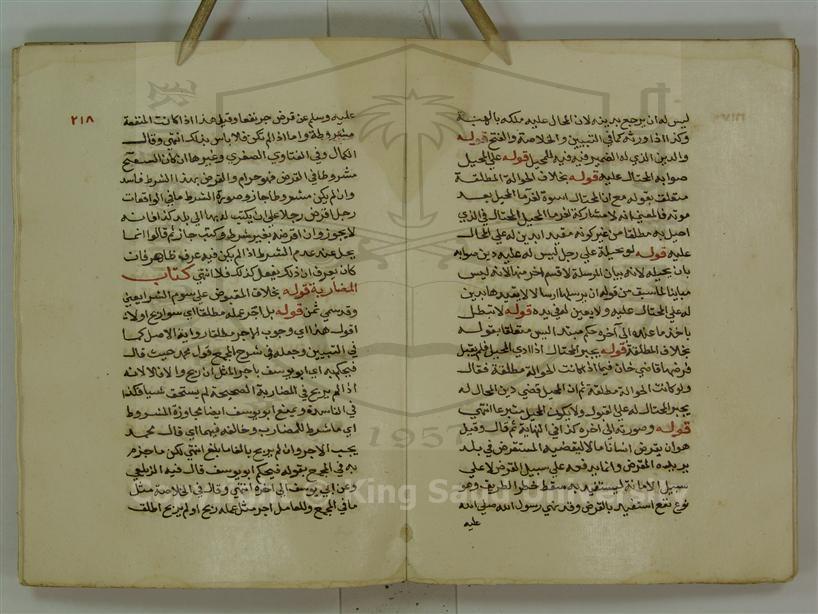 ليس له ان يرجع بدينه لان المحال عليه ملكه بالهبة
وكذا اذا ورثه كما في التبيين والخلاصة والفتح قوله
والدين الذي له الضمير فيه فيه للمحيل قوله على المحيل
صوابه المحتال عليه قوله بخلاف الحوالة المطلقة
متعلق بقوله مع ان المحتال اسوة لغرماء المحيل بعد
موته فالمعنى انه لا مشاركة لغرماء المحيل المحتال في الذي
احيل به مطلقا من غير كونه مقيد ابدين له على المحال
عليه قوله لو بحيلة على رجل ليس له عليه دين صوابه
بان يحيله لانه بيان المرسلة لا قسم اخر منها لانه ليس
مباينا لما سبق من قوله ان يرسلها ارسالا لا يقيدها بدين
له على المحتال عليه ولا بعين له في يده قوله لا تبطل
باخذ ما عليه الى آخره حكم مبتدا ليس متعلقا بقوله
بخلاف المطلقة قوله يجبر المحتال اذا ادى المحيل فلم يقبل
فرضها قاضي خان فيما اذا كانت الحوالة مطلقة فقال
ولو كانت الحوالة مطلقة ثم ان المحيل قضى دين المحال له
يجبر المحتال له على القبول ولا يكون المحيل متبرعا انتهى
قوله وصورته الى اخره كذا في النهاية ثم قال وقيل
هو ان يقرض انسانا مالا ليقضيه المستقرض في بلد
يريده المقرض وانما يدفعه على سبيل القرض لا على
سبيل الامانة ليستفيد به سقط خطر الطريق وهو
نوع نفع استفيد بالقرض وقد نهى رسول الله صلى الله
عليه
٢١٨
عليه وسلم عن قرض جر نفعا وقيل هذا اذا كانت المنفعة
مشروطة واما اذا لم تكن فلا باس بذلك انتهى وقال
الكمال وفي الفتاوى الصغرى وغيرها ان كان السفتج
مشروطا في القرض فهو حرام والقرض بهذا الشرط فاسد
وان لم يكن مشروطا جاز وصورة الشرط ما في الواقعات
رجل اقرض رجلا على ان يكتب له بها الى بلد كذا فانه
لا يجوز وان اقرضه بغير شرط وكتب جاز ثم قالوا انما
يحل عند عدم الشرط اذا لم يكن فيه عرف ظاهر فان
كان يعرف ان ذلك يفعل كذلك فلا انتهى كتاب
المضاربة قوله بخلاف المقبوض على سوم الشرا يعني
وقد سمى ثمن قوله بل اجر عمله مطلقا اي سوا ربح اولا
اقول هذا اي وجوب الاجر مطلقا رواية الاصل كما
في التبيين وجعله في شرح المجمع قول محمد حيث قال
فيحكم به اي ابو يوسف باجر المثل ان ربح والا فلا لانه
اذا لم يربح في المضاربة الصحيحة لم يستحق شيا فكذا
في الفاسدة ويمنع ابو يوسف ايضا مجاوزة المشروط
اي ما شرط للمضارب وخالفه فيهما اي قال محمد
يجب الاجر وان لم يربح بالغا ما بلغ انتهى لكن ما جزم
به في المجمع بقوله فيحكم ابو يوسف قال فيه الزيلعي
وعن ابي يوسف الى اخره انتهى وقال في الخلاصة مثل
ما في المجمع وللعامل اجر مثل عمله ربح او لم يربح اطلق
1957
King Saud University